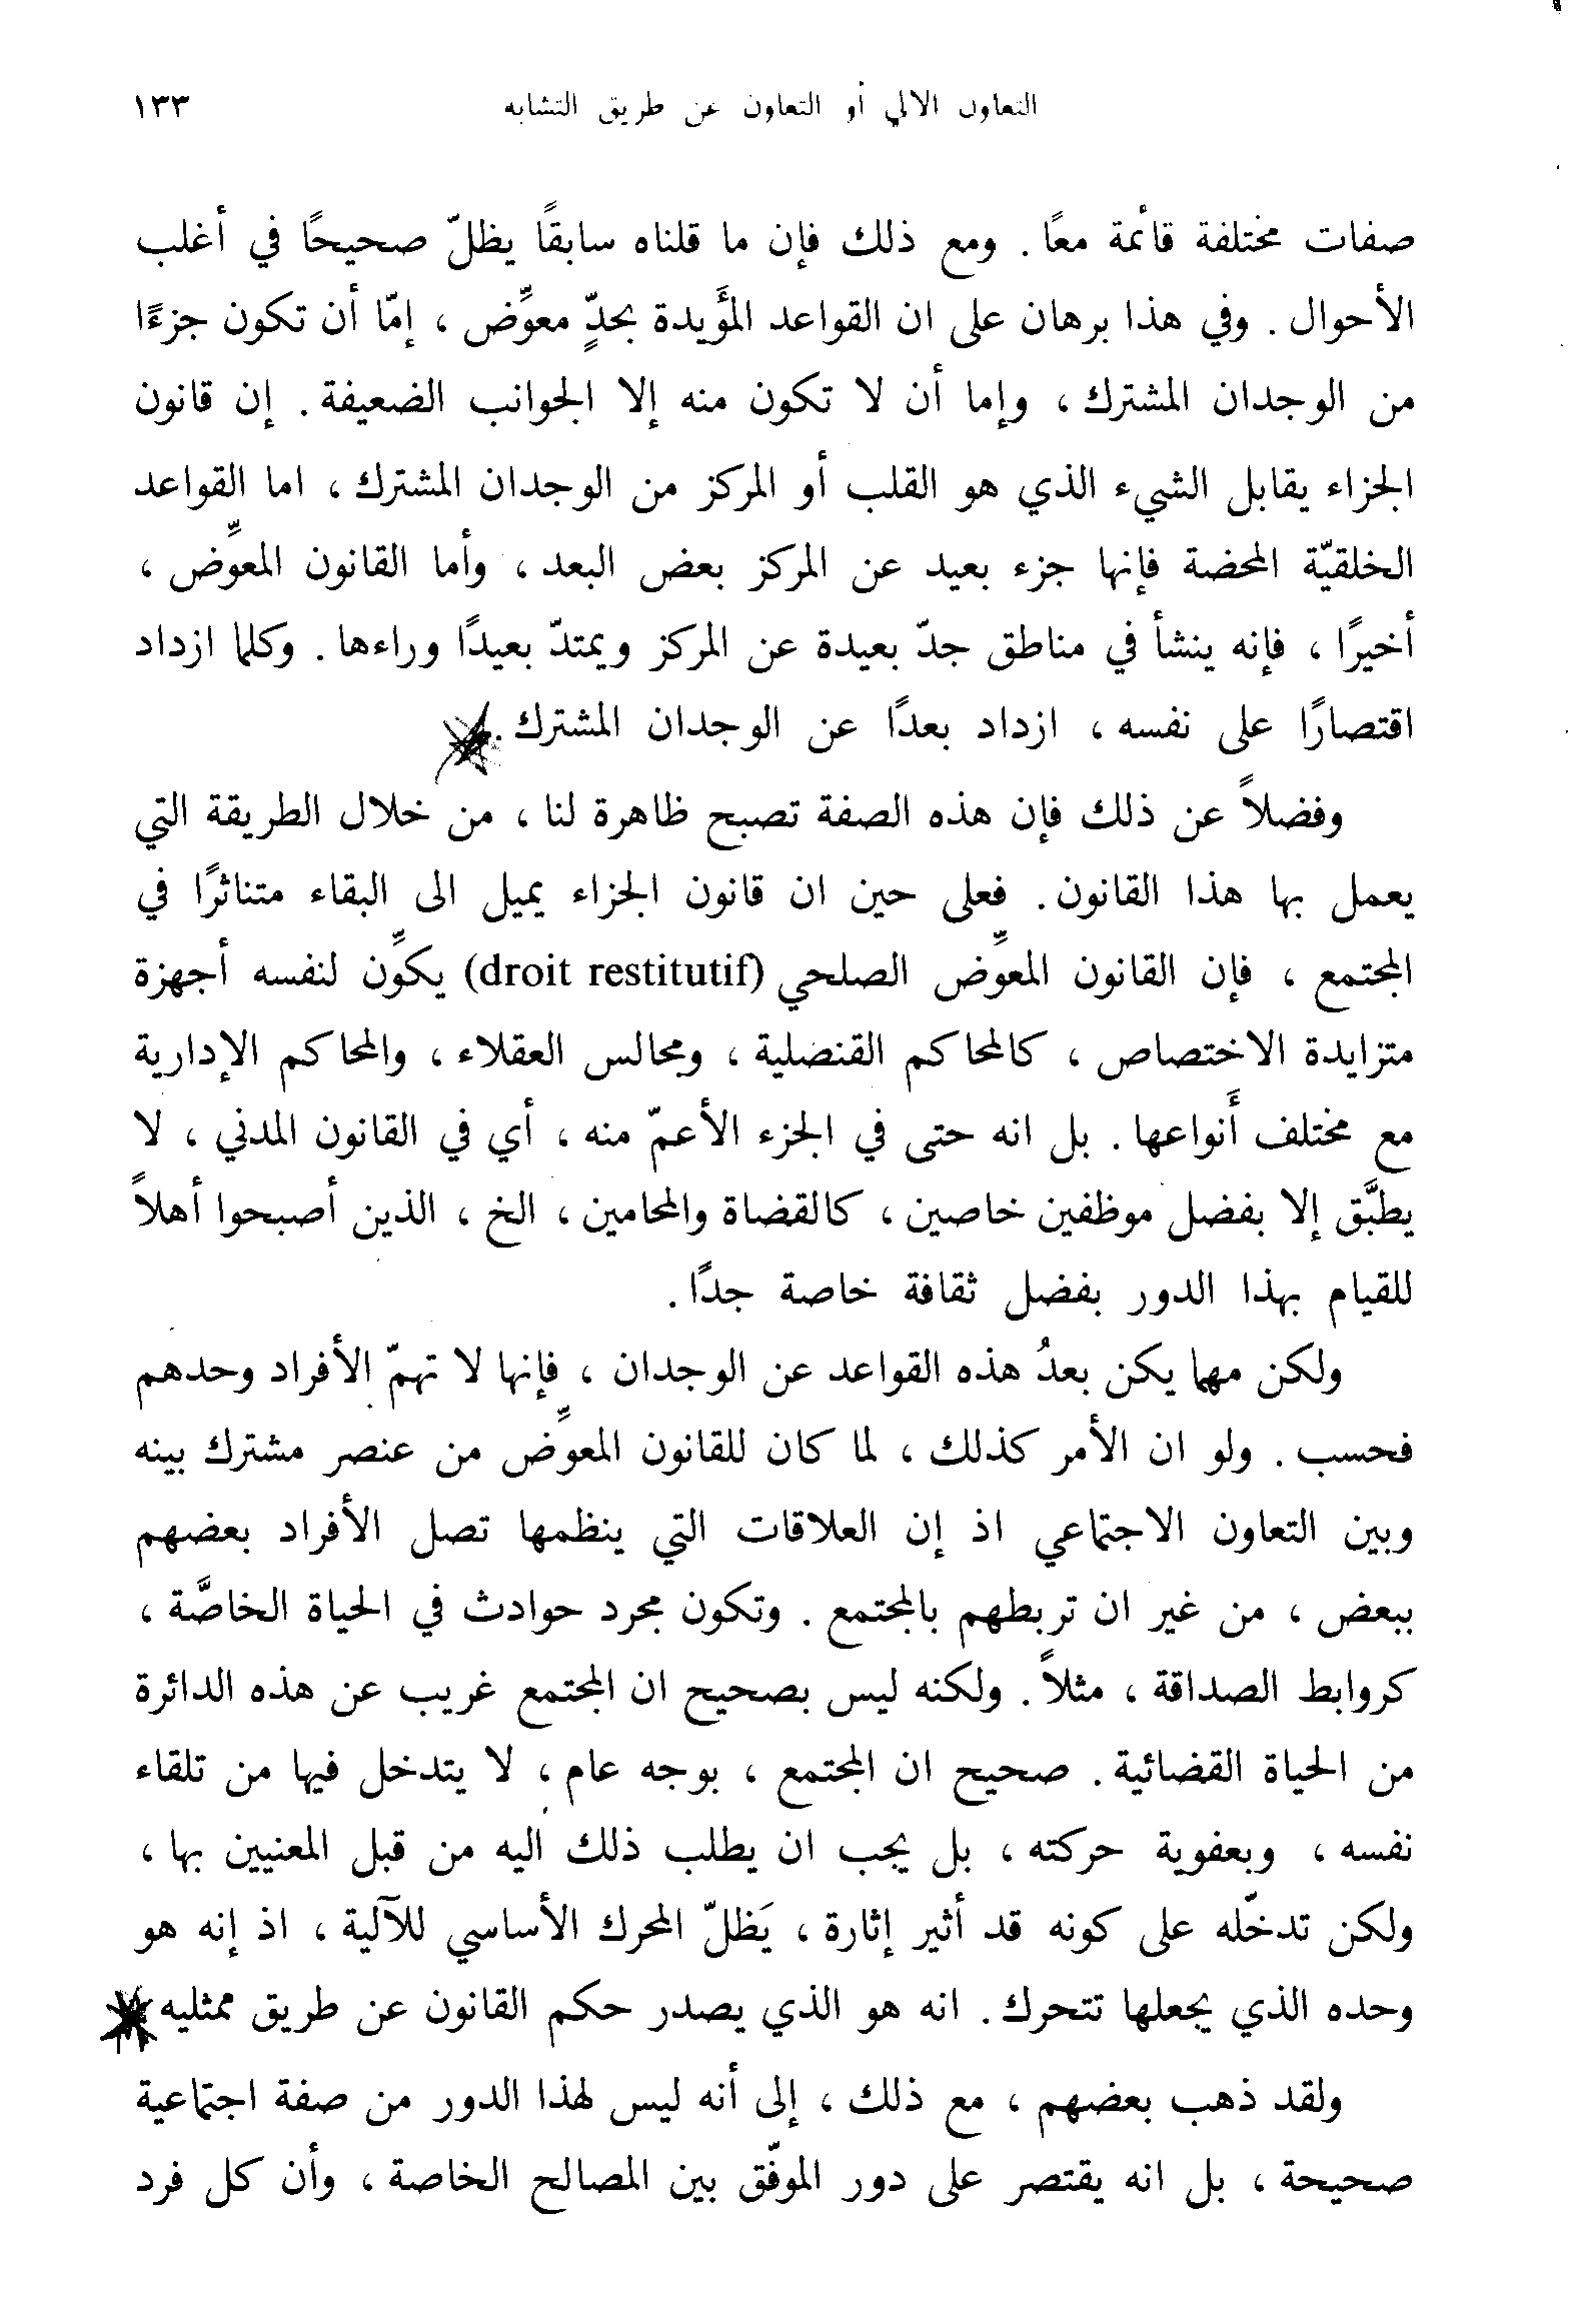 التعاون الالي أو التعاون عن طريق التشابه ١٣٣
صفات مختلفة قائمة معًا . ومع ذلك فإن ما قلناه سابقًا يظلّ صحيحًا في أغلب
الأحوال . وفي هذا برهان على ان القواعد المؤَيدة بحدٍّ معوِّض ، إمّا أن تكون جزءًا
من الوجدان المشترك ، وإما أن لا تكون منه إلا الجوانب الضعيفة . إن قانون
الجزاء يقابل الشيء الذي هو القلب أو المركز من الوجدان المشترك ، اما القواعد
الخلقيّة المحضة فإنها جزء بعيد عن المركز بعض البعد ، وأما القانون المعوِّض ،
أخيرًا ، فإنه ينشأ في مناطق جدّ بعيدة عن المركز ويمتدّ بعيدًا وراءها . وكلما ازداد
اقتصارًا على نفسه ، ازداد بعدًا عن الوجدان المشترك .
وفضلاً عن ذلك فإن هذه الصفة تصبح ظاهرة لنا ، من خلال الطريقة التي
يعمل بها هذا القانون . فعلى حين ان قانون الجزاء يميل الى البقاء متناثرًا في
المجتمع ، فإن القانون المعوِّض الصلحي (droit restitutif) يكوِّن لنفسه أجهزة
متزايدة الاختصاص ، كالمحاكم القنصلية ، ومجالس العقلاء ، والمحاكم الإدارية
مع مختلف أَنواعها . بل انه حتى في الجزء الأعمّ منه ، أي في القانون المدني ، لا
يطبَّق إلا بفضل موظفين خاصين ، كالقضاة والمحامين ، الخ ، الذين أصبحوا أهلاً
للقيام بهذا الدور بفضل ثقافة خاصة جدًا .
ولكن مهما يكن بعدُ هذه القواعد عن الوجدان ، فإنها لا تهمّ الأفراد وحدهم
فحسب . ولو ان الأمر كذلك ، لما كان للقانون المعوِّض من عنصر مشترك بينه
وبين التعاون الاجتماعي اذ إن العلاقات التي ينظمها تصل الأفراد بعضهم
ببعض ، من غير ان تربطهم بالمجتمع . وتكون مجرد حوادث في الحياة الخاصَّة ،
كروابط الصداقة ، مثلاً . ولكنه ليس بصحيح ان المجتمع غريب عن هذه الدائرة
من الحياة القضائية . صحيح ان المجتمع ، بوجه عام ، لا يتدخل فيها من تلقاء
نفسه ، وبعفوية حركته ، بل يجب ان يطلب ذلك اليه من قبل المعنيين بها ،
ولكن تدخّله على كونه قد أثير إثارة ، يَظلّ المحرك الأساسي للآلية ، اذ إنه هو
وحده الذي يجعلها تتحرك . انه هو الذي يصدر حكم القانون عن طريق ممثليه
ولقد ذهب بعضهم ، مع ذلك ، إلى أنه ليس لهذا الدور من صفة اجتماعية
صحيحة ، بل انه يقتصر على دور الموفّق بين المصالح الخاصة ، وأن كل فرد